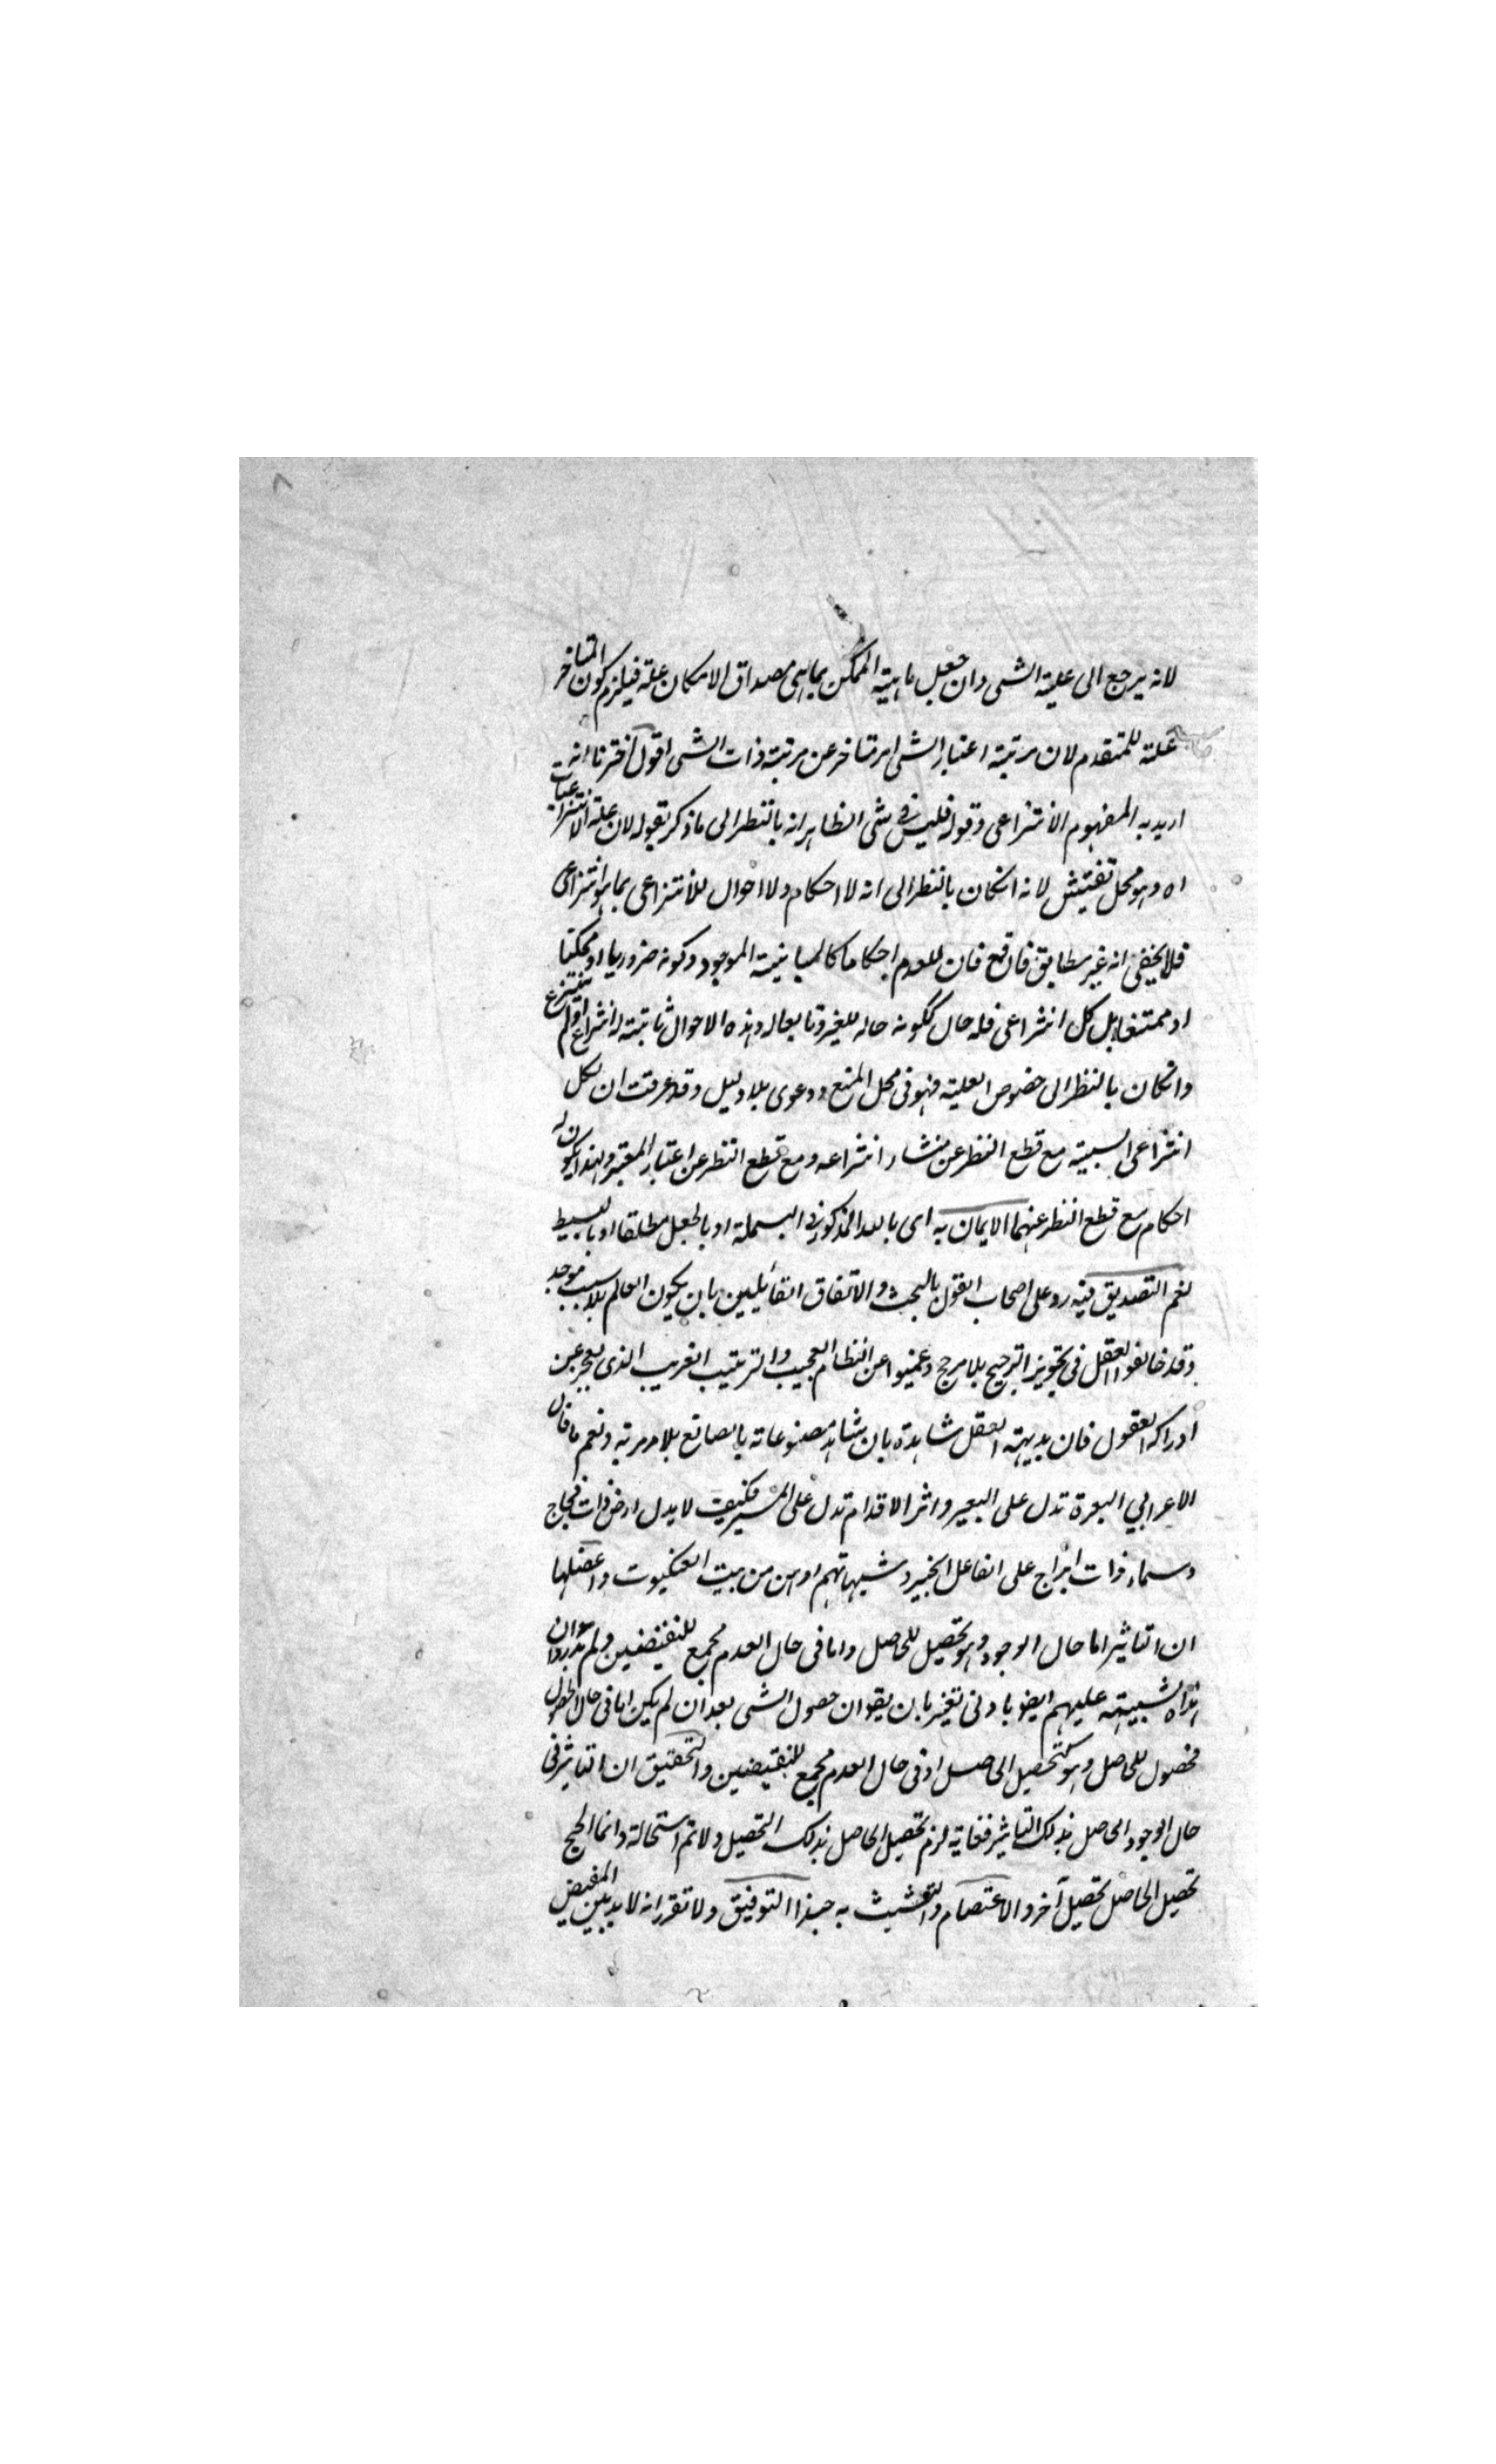 ٨
لانه يرجع الى علية الشى وان جعل ماهية الممكن بما هى مصداق الامكان علة فيلزم كون المتاخر
علة للمتقدم لان مرتبة اعتبار الشى امر متاخر عن مرتبة ذات الشى اقول اخترنا انه
اريد به المفهوم الانتزاعى وقوله فليس فى شى الظاهر انه بالنظر الى ما ذكر بقوله لان علة الانتزاعيات
اه وهو محل تفتيش لانه انكان بالنظر الى انه لا احكام ولا احوال للانتزاعى بما هو انتزاعى
فلا يخفى انه غير مطابق فان للعدم احكاما كالمباينية الموجود وكونه ضروريا او ممكنا
او ممتنعا بل كل انتزاعى فله حال ككونه حاله للغير وتابعا له وهذه الاحوال ثابتة له انتزاع اولم ينتزع
وانكان بالنظر الى خصوص العلية فهو فى محل المنع ودعوى بلا دليل وقد عرفت ان لكل
انتزاعى السببية مع قطع النظر عن منشاء انتزاعه ومع قطع النظر عن اعتبار المعتبر ولهذا يكون له
احكام مع قطع النظر عنهما الايمان به اى بالله المذكور فى البسملة او بالجعل مطلقا او بالبسيط
نعم التصديق فيه رد على اصحاب القول بالبحث والاتفاق القائلين بان يكون العالم بلا سبب موجد
وقد خالفوا العقل فى تجويز الترجيح بلا مرجح وعميوا عن النظام العجيب والترتيب الغريب الذى يعجز عن
ادراكه العقول فان بديهة العقل شاهدة بان شاهد مصنوعاته بالصانع بلا مرية ونعم ما قال
الاعرابي البعرة تدل على البعير واثر الاقدام تدل على المسير فكيف لا يدل ارض ذات فجاج
وسماء ذات ابراج على الفاعل الخبير وشبهاتهم اوهن من بيت العنكبوت واعضلها
ان التاثير اما حال الوجود وهو تحصيل للحاصل واما فى حال العدم مجمع للنقيضين ولم يتدبروا ان
هذه الشبيهة عليهم ايضا بادنى تغير بان يقو ان حصول الشى بعد ان لم يكن اما فى حال الحصول
فحصول للحاصل وهو كتحصيل الحاصل او فى حال العدم مجمع للنقيضين والتحقيق ان التاثير فى
حال الوجود الحاصل بذلك التاثير فغاية لزم تحصيل الحاصل بذلك التحصيل ولاتم استحالة وانما المحج
تحصيل الحاصل تحصيل آخر والاعتصام والتشبث به حبذا التوفيق ولا تقرر انه لا بد بين المفيض